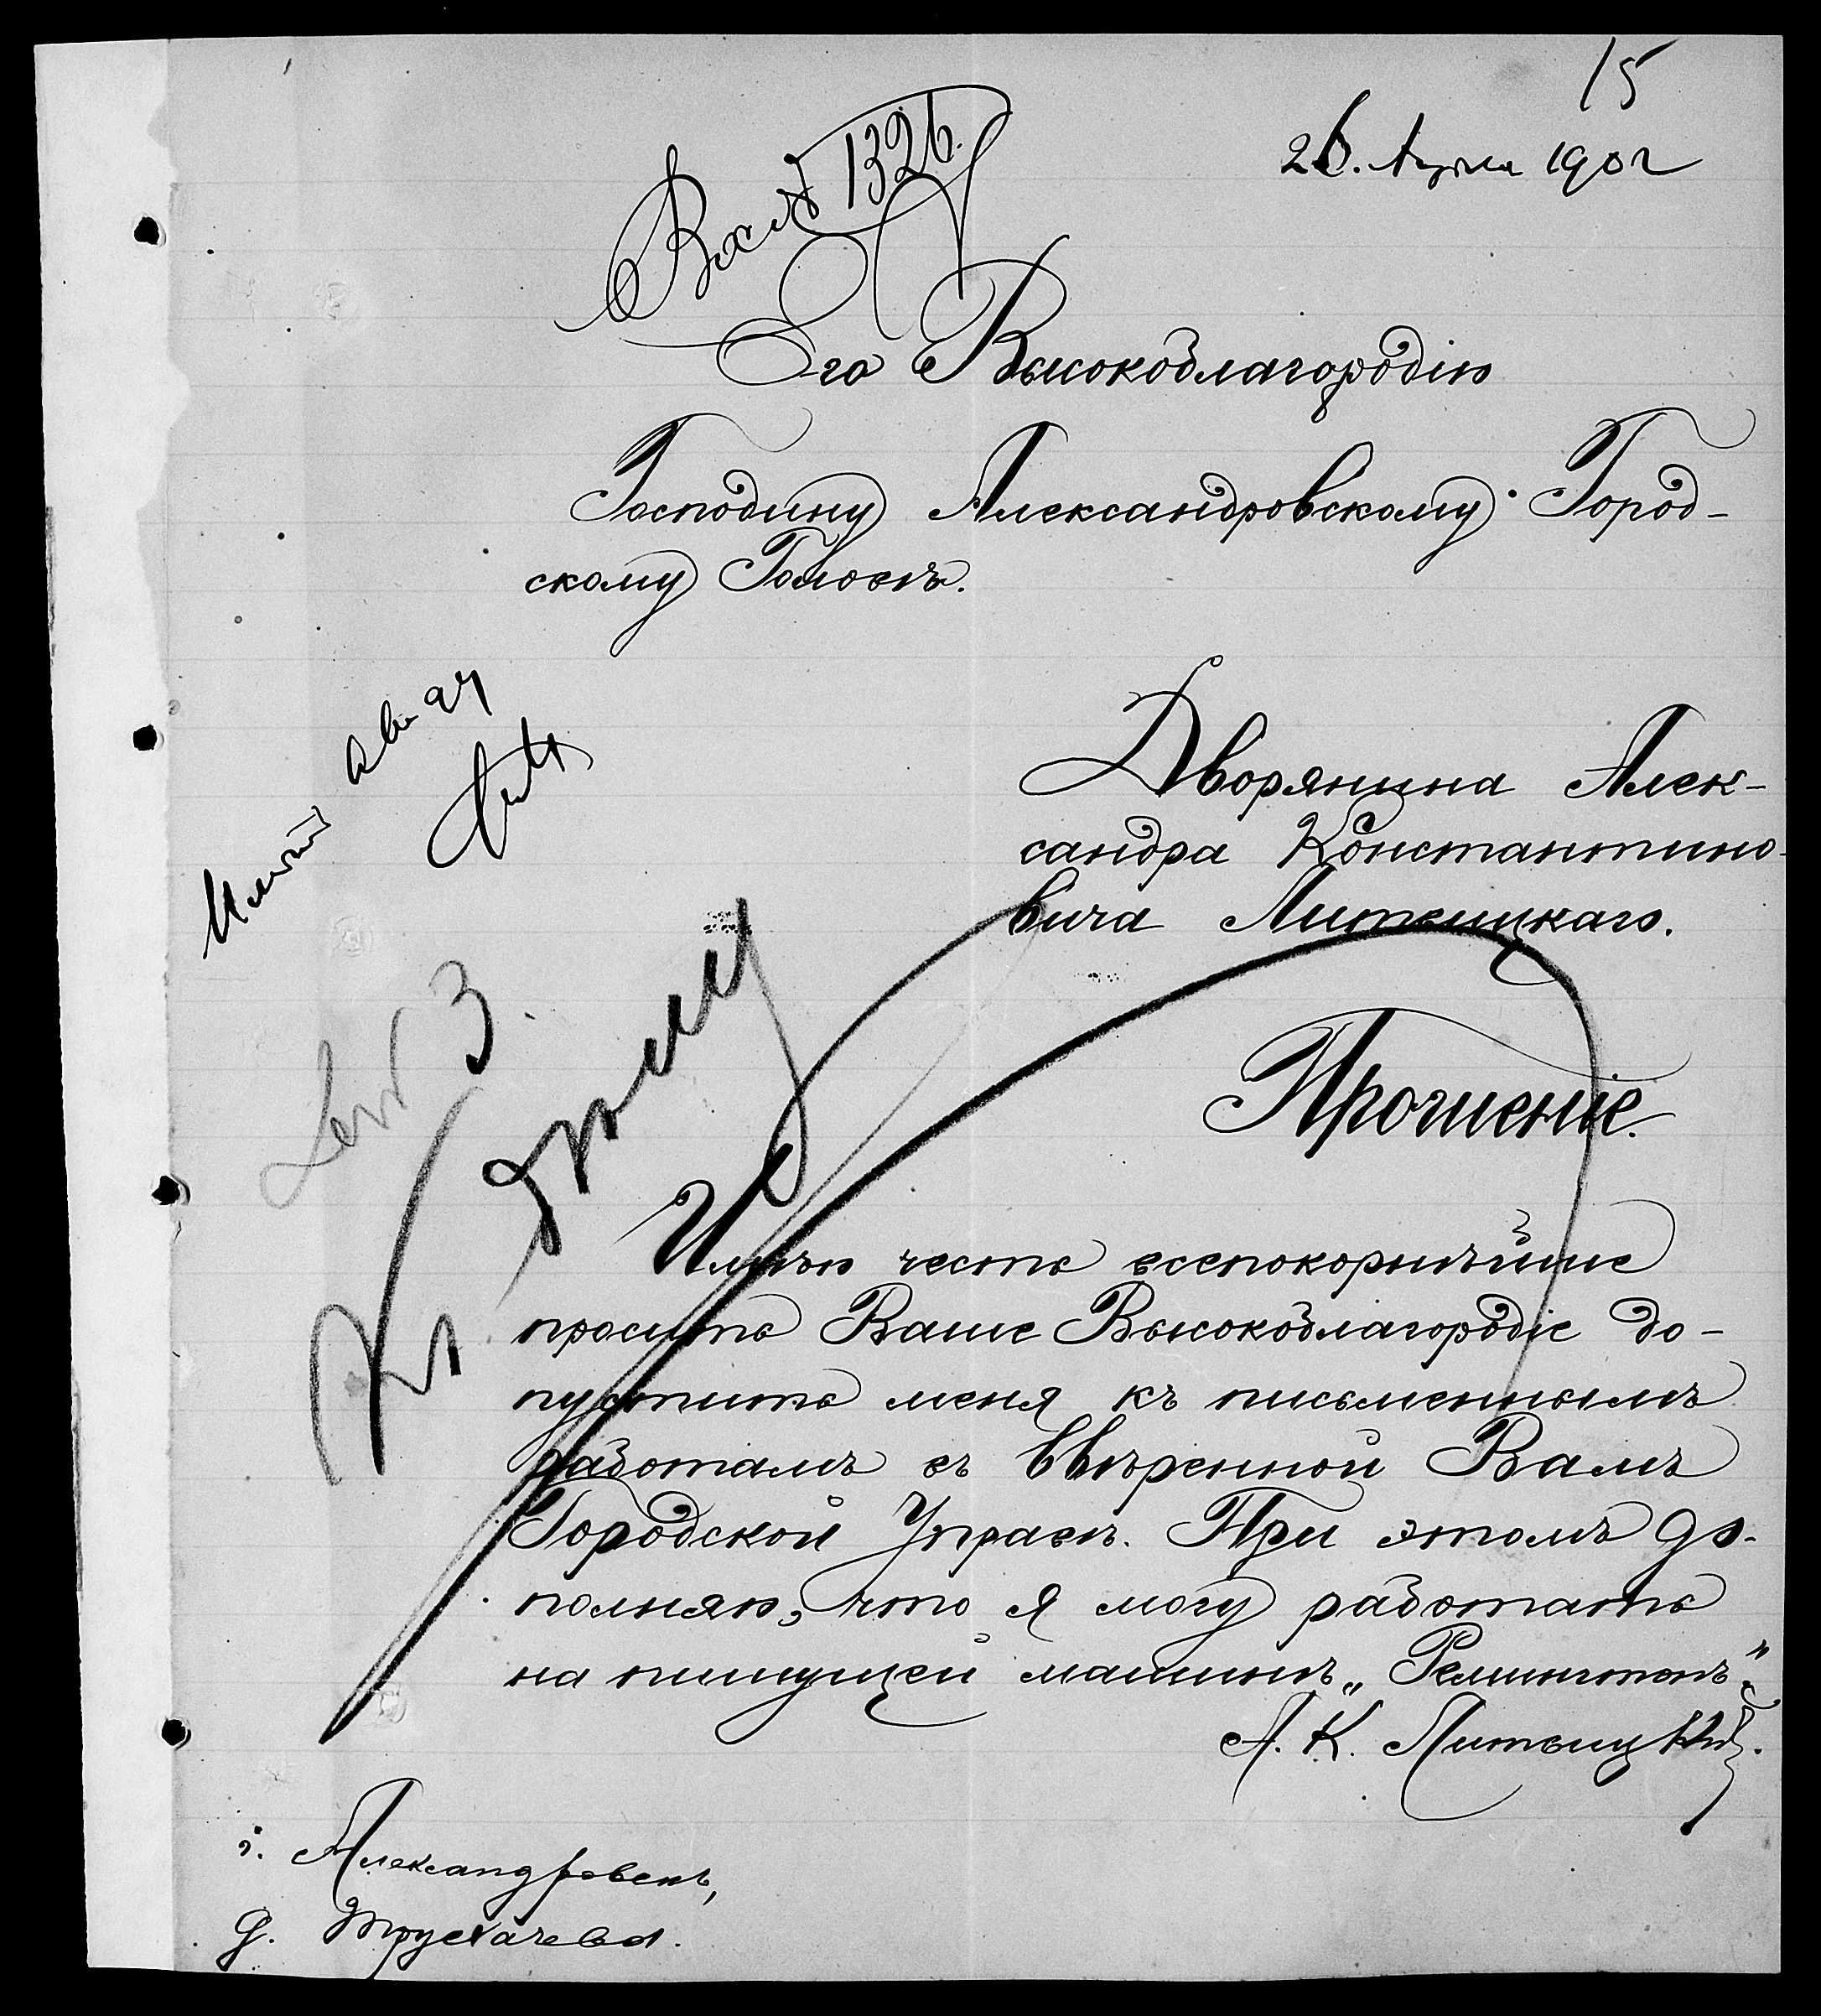 15
26. Апрѣля 1902
Вход. 1326.
Его Высокоблагородію
Господину Александровскому Город-
скому Головѣ.
Дворянина Алек-
сандра Константино-
вича Литыцкаго.
Прошеніе.
Имѣю честь всепокорнѣйше
просить Ваше Высокоблагородіе до-
пустить меня къ письменнымъ
работамъ въ ввѣренной Вамъ
Городской Управѣ. При этомъ до-
полняю, что я могу работать
на пишущей машинѣ „Ремингтонъ".
А. К. Литыцкій.
Къ дѣлу
г. Александровскъ,
д. Трухачева.